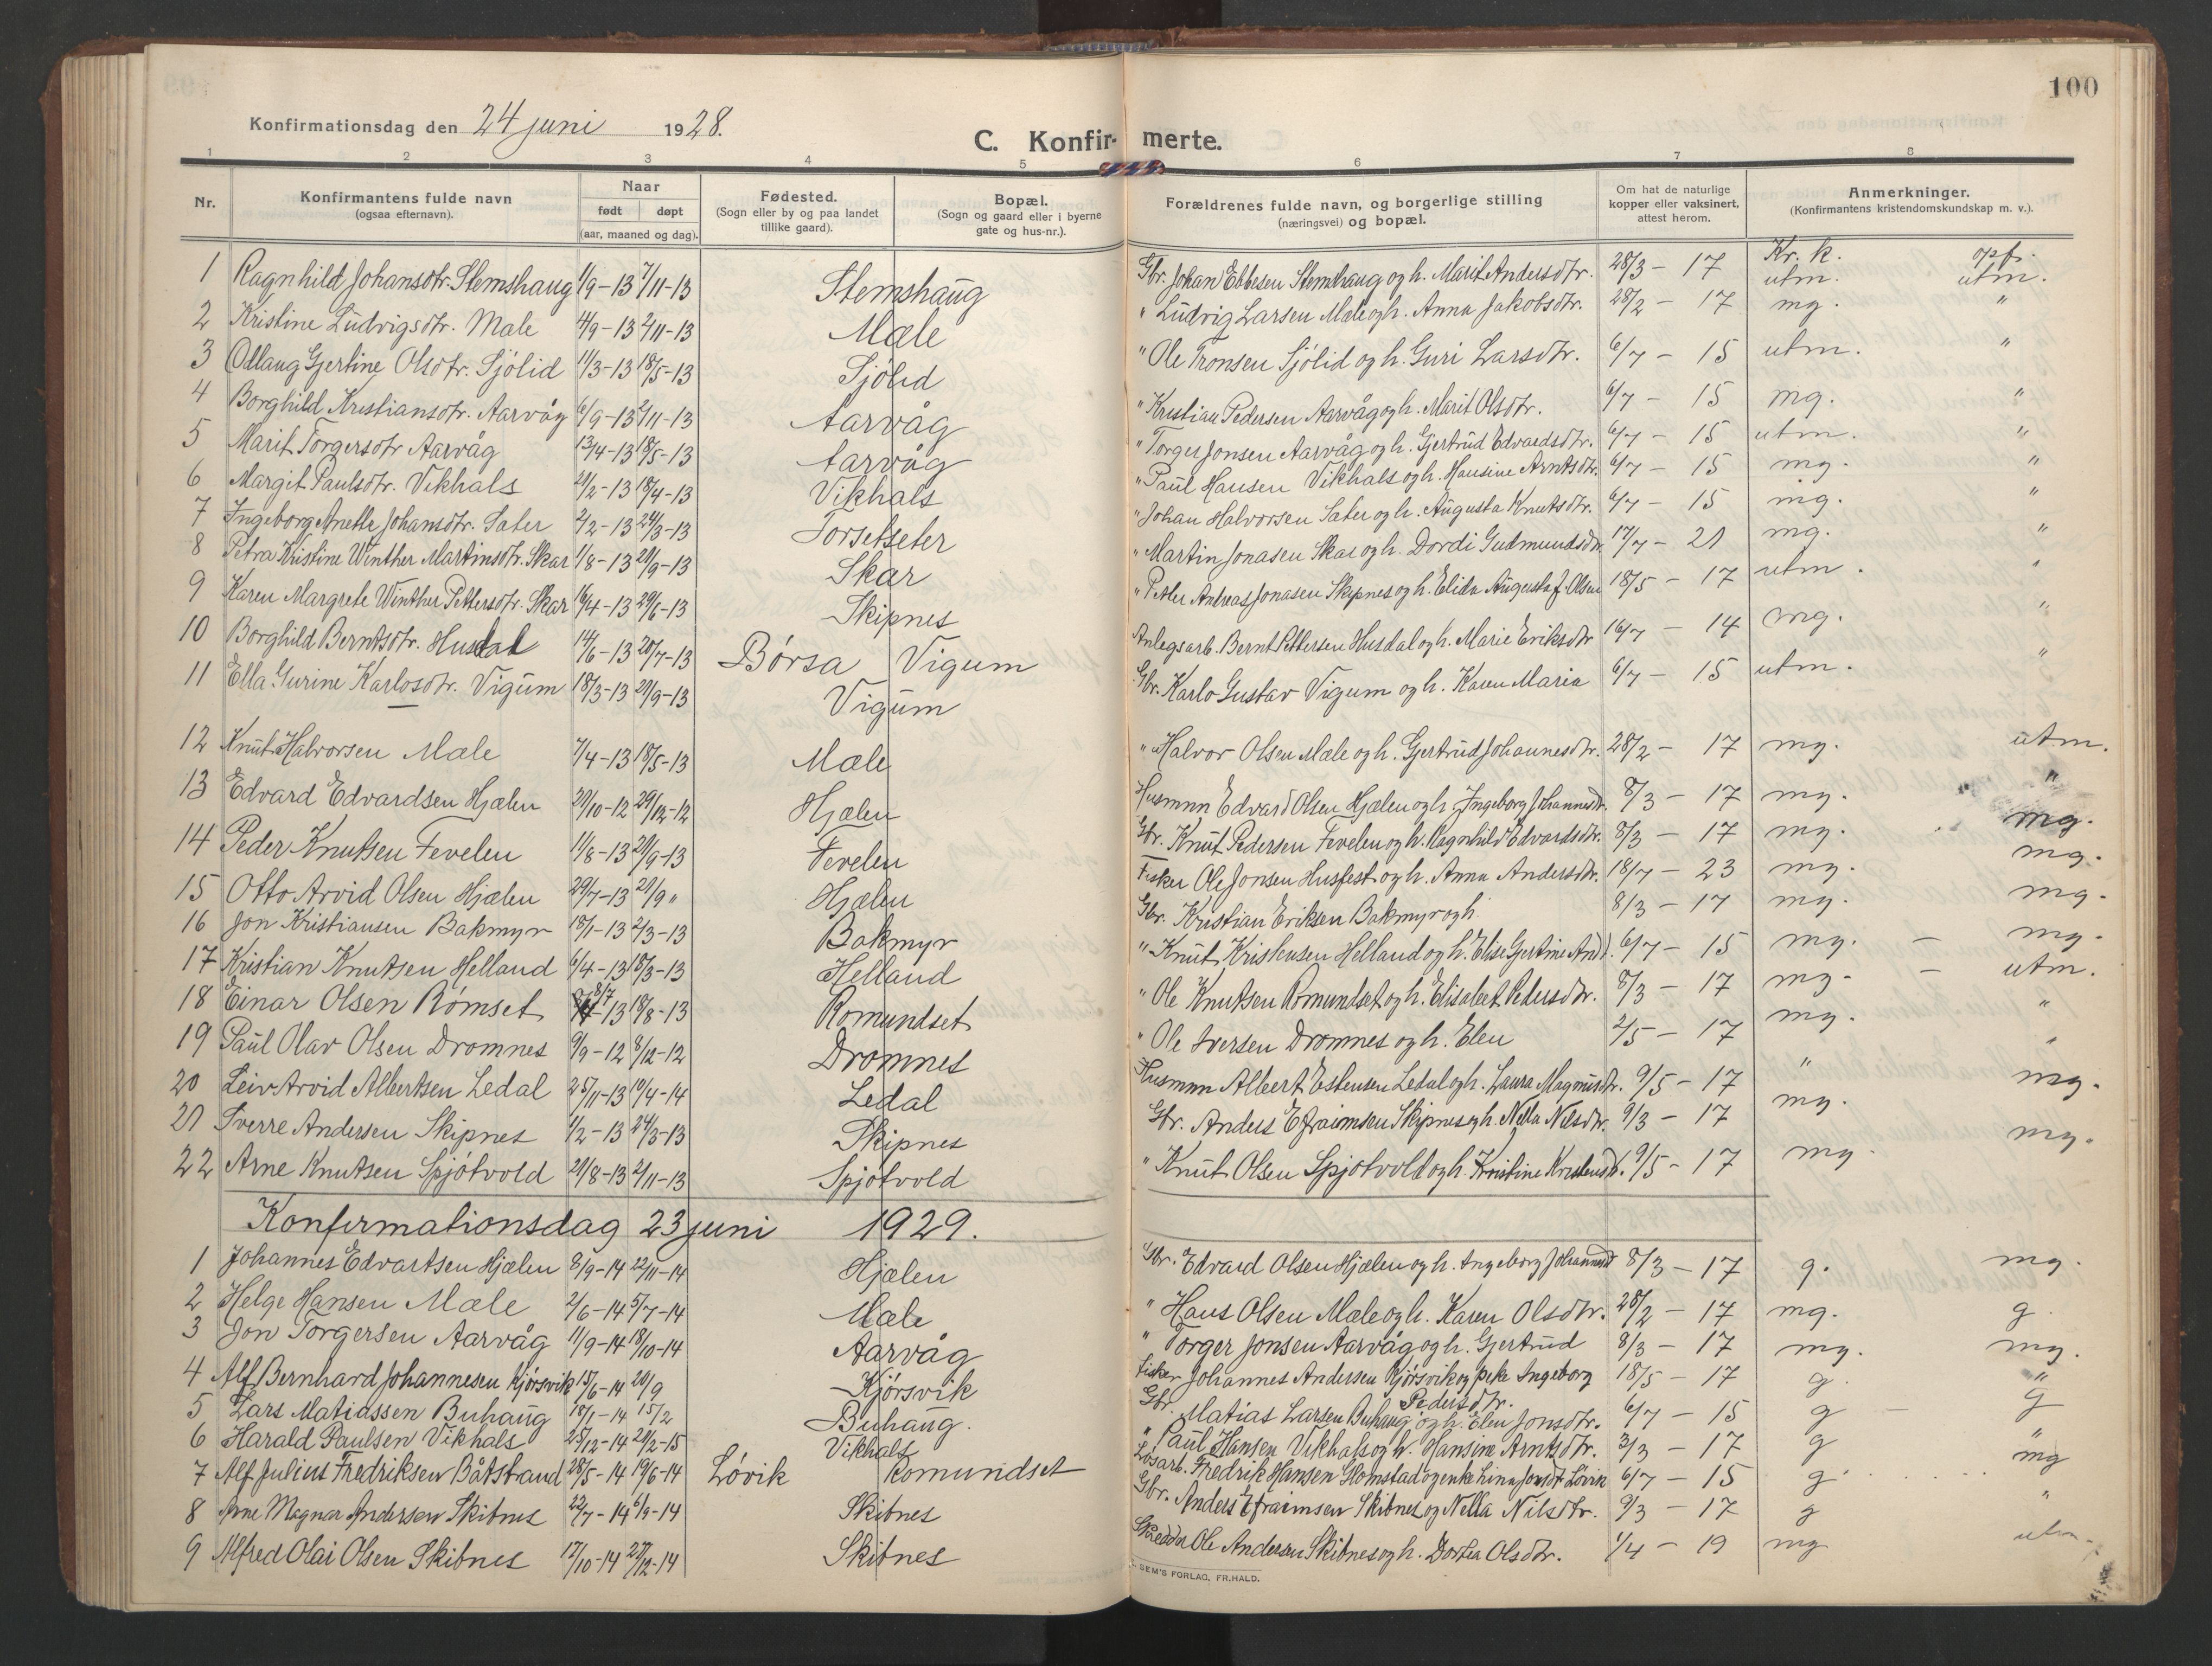 100
Konfirmationsdag den 24 juni 1928.
C. Konfirmerte.
1 2 3 4 5 6 7 8
Nr. Konfirmantens fulde navn (ogsaa efternavn). Naar født døpt (aar, maaned og dag). Fødested. (Sogn eller by og paa landet tillike gaard). Bopæl. (Sogn og gaard eller i byerne gate og hus-nr.). Forældrenes fulde navn, og borgerlige stilling (næringsvei) og bopæl. Om hat de naturlige kopper eller vaksinert, attest herom. Anmerkninger. (Konfirmantens kristendomskundskap m. v.).
Kr. k. opf.
1 Ragnhild Johansdtr. Stemshaug 1/9-13 7/11-13 Stemshaug Gbr. Johan Ebbesen Stemshaug og h. Marit Andersdtr. 28/3 - 17 utm. utm.
2 Kristine Ludvigsdtr. Mæle 4/9-13 2/11-13 Mæle " Ludvig Larsen Mæle og h. Anna Jakobsdtr. 28/2 - 17 mg. "
3 Ollaug Gjertine Olsdtr. Sjölid 11/3-13 18/5-13 Sjölid " Ole Tronsen Sjölid og h. Guri Larsdtr. 6/7 - 15 utm. "
4 Borghild Kristiansdtr. Aarvåg 6/9-13 2/11-13 Aarvåg " Kristian Pedersen Aarvåg og h. Marit Olsdtr. 6/7 - 15 mg. "
5 Marit Torgersdtr Aarvåg 13/4-13 18/5-13 Aarvåg " Torger Jonsen Aarvåg og h. Gjertrud Edvardsdtr. 6/7 - 15 utm. "
6 Margit Paulsdtr. Vikhals 21/2-13 18/4-13 Vikhals " Paul Hansen Vikhals og h. Hansine Arntsdtr. 6/7 - 15 mg. "
7 Ingeborg Anette Johansdtr. Sæter 2/2-13 24/3-13 Torsetseter " Johan Halvorsen Sæter og h. Augusta Knutsdtr. 6/7 - 15 mg. "
8 Petra Kristine Winther Martinsdtr. Skar 1/8-13 21/9-13 Skar " Martin Jonasen Skar og h. Dordi Gudmundsdtr 17/7 - 21 mg. "
9 Karen Margrete Winther Pettersdtr. Skar 16/4-13 29/6-13 Skipnes " Petter Andreas Jonasen Skipnes og h. Elida Augusta f. Olsen 18/5 - 17 utm. "
10 Borghild Berntsdtr. Husdal 14/6-13 20/7-13 Börsa Vigum Anlegsarb. Bernt Pettersen Husdal og h. Marie Eriksdtr 16/7 - 14 mg. "
11 Ella Gurine Karlosdtr. Vigum 18/3-13 21/9-13 Vigum Gbr. Karlo Gustav Vigum og h. Karen Maria 6/7 - 15 utm. "
12 Knut Halvorsen Mæle 7/4-13 18/5-13 Mæle " Halvor Olsen Mæle og h. Gjertrud Johannesdtr. 28/2 - 17 mg. utm.
13 Edvard Edvardsen Hjælen 20/10-12 29/12-12 Hjælen Husmnn Edvard Olsen Hjælen og h. Ingeborg Johannesdtr. 8/3 - 17 mg. "
14 Peder Knutsen Fevelen 11/8-13 21/9-13 Fevelen Gbr. Knut Pedersen Fevelen og h. Ragnhild Edvardsdtr. 8/3 - 17 mg. mg.
15 Otto Arvid Olsen Hjælen 29/7-13 21/9 " Hjælen Fisker Ole Jonsen Husfest og h. Anna Andersdtr. 18/7 - 23 mg. mg.
16 Jon Kristiansen Bakmyr 18/1-13 2/3-13 Bakmyr Gbr. Kristian Eriksen Bakmyr og h. 8/3 - 17 mg. mg.
17 Kristian Knutsen Helland 6/4-13 18/3-13 Helland " Knut Kristensen Helland og h. Elise Gjertine And. 6/7 - 15 mg. - mg.
18 Einar Olsen Römset 8/7 13 18/8-13 Romundset " Ole Knutsen Romundset og h. Elisabet Pedersdtr. 8/3 - 17 mg - - utm.
19 Paul Olav Olsen Dromnes 9/9-12 8/12-12 Dromnes " Ole Iversen Dromnes og h. Elen 2/5 - 17 mg. "
20 Leiv Arvid Albertsen Ledal 25/11-13 19/4-14 Ledal Husmnn Albert Estensen Ledal og h. Laura Magnusdtr. 9/5 - 17 " "
21 Sverre Andersen Skipnes 1/2-13 24/3-13 Skipnes Gbr. Anders Efraimsen Skipnes og h. Nella Nilsdtr. 9/3 - 17 mg. mg.
22 Arne Knutsen Spjötvold 21/8-13 2/11-13 Spjötvold " Knut Olsen Spjötvold og h. Kristine Kristensd. 9/5 - 17 mg. mg.
Konfirmationsdag 23 juni 1929.
1 Johannes Edvartsen Hjælen 8/9-14 22/11-14 Hjælen Gbr. Edvard Olsen Hjælen og h. Ingeborg Johannesd 8/3 - 17 g. mg.
2 Helge Hansen Mæle 2/6-14 5/7-14 Mæle " Hans Olsen Mæle og h. Karen Olsdtr. 28/2 - 17 mg. g.
3 Jon Torgersen Aarvåg 11/9-14 18/10-14 Aarvåg " Torger Jonsen Aarvåg og h. Gjertrud 8/3 - 17 mg. mg.
4 Alf Bernhard Johannesen Kjörsvik 15/6-14 20/9 Kjörsvik Fisker Johannes Andersen Kjörsvik og pike Ingeborg Pedersdtr. 18/5 - 17 g. "
5 Lars Matiassen Buhaug 18/1-14 15/2 Buhaug. Gbr. Matias Larsen Buhaug og h. Elen Jonsdtr. 6/7 - 15 g - g
6 Harald Paulsen Vikhals 25/12-14 21/2-15 Vikhals " Paul Hansen Vikhals og h. Hansine Arntsdtr. 3/3 - 17 g "
7 Alf Julius Fredriksen Båtstrand 28/5-14 19/6-14 Lövik Romundset Lösarb. Fredrik Hansen Glomstad og enke Lina Jonsdt Lövik 6/7 - 15 g. mg
8 Arne Magnar Andersen Skibnes 22/7-14 6/9-14 Skibnes Gbr. Anders Efraimsen Skibnes og Nella Nilsdtr. 9/3 - 17 g "
9 Alfred Olai Olsen Skibnes 17/10-14 27/12-14 Skibnes Skredder Ole Andersen Skibnes og h. Dortea Olsdtr. 1/4 - 19 mg utm.
SEM'S FORLAG, FR.HALD.